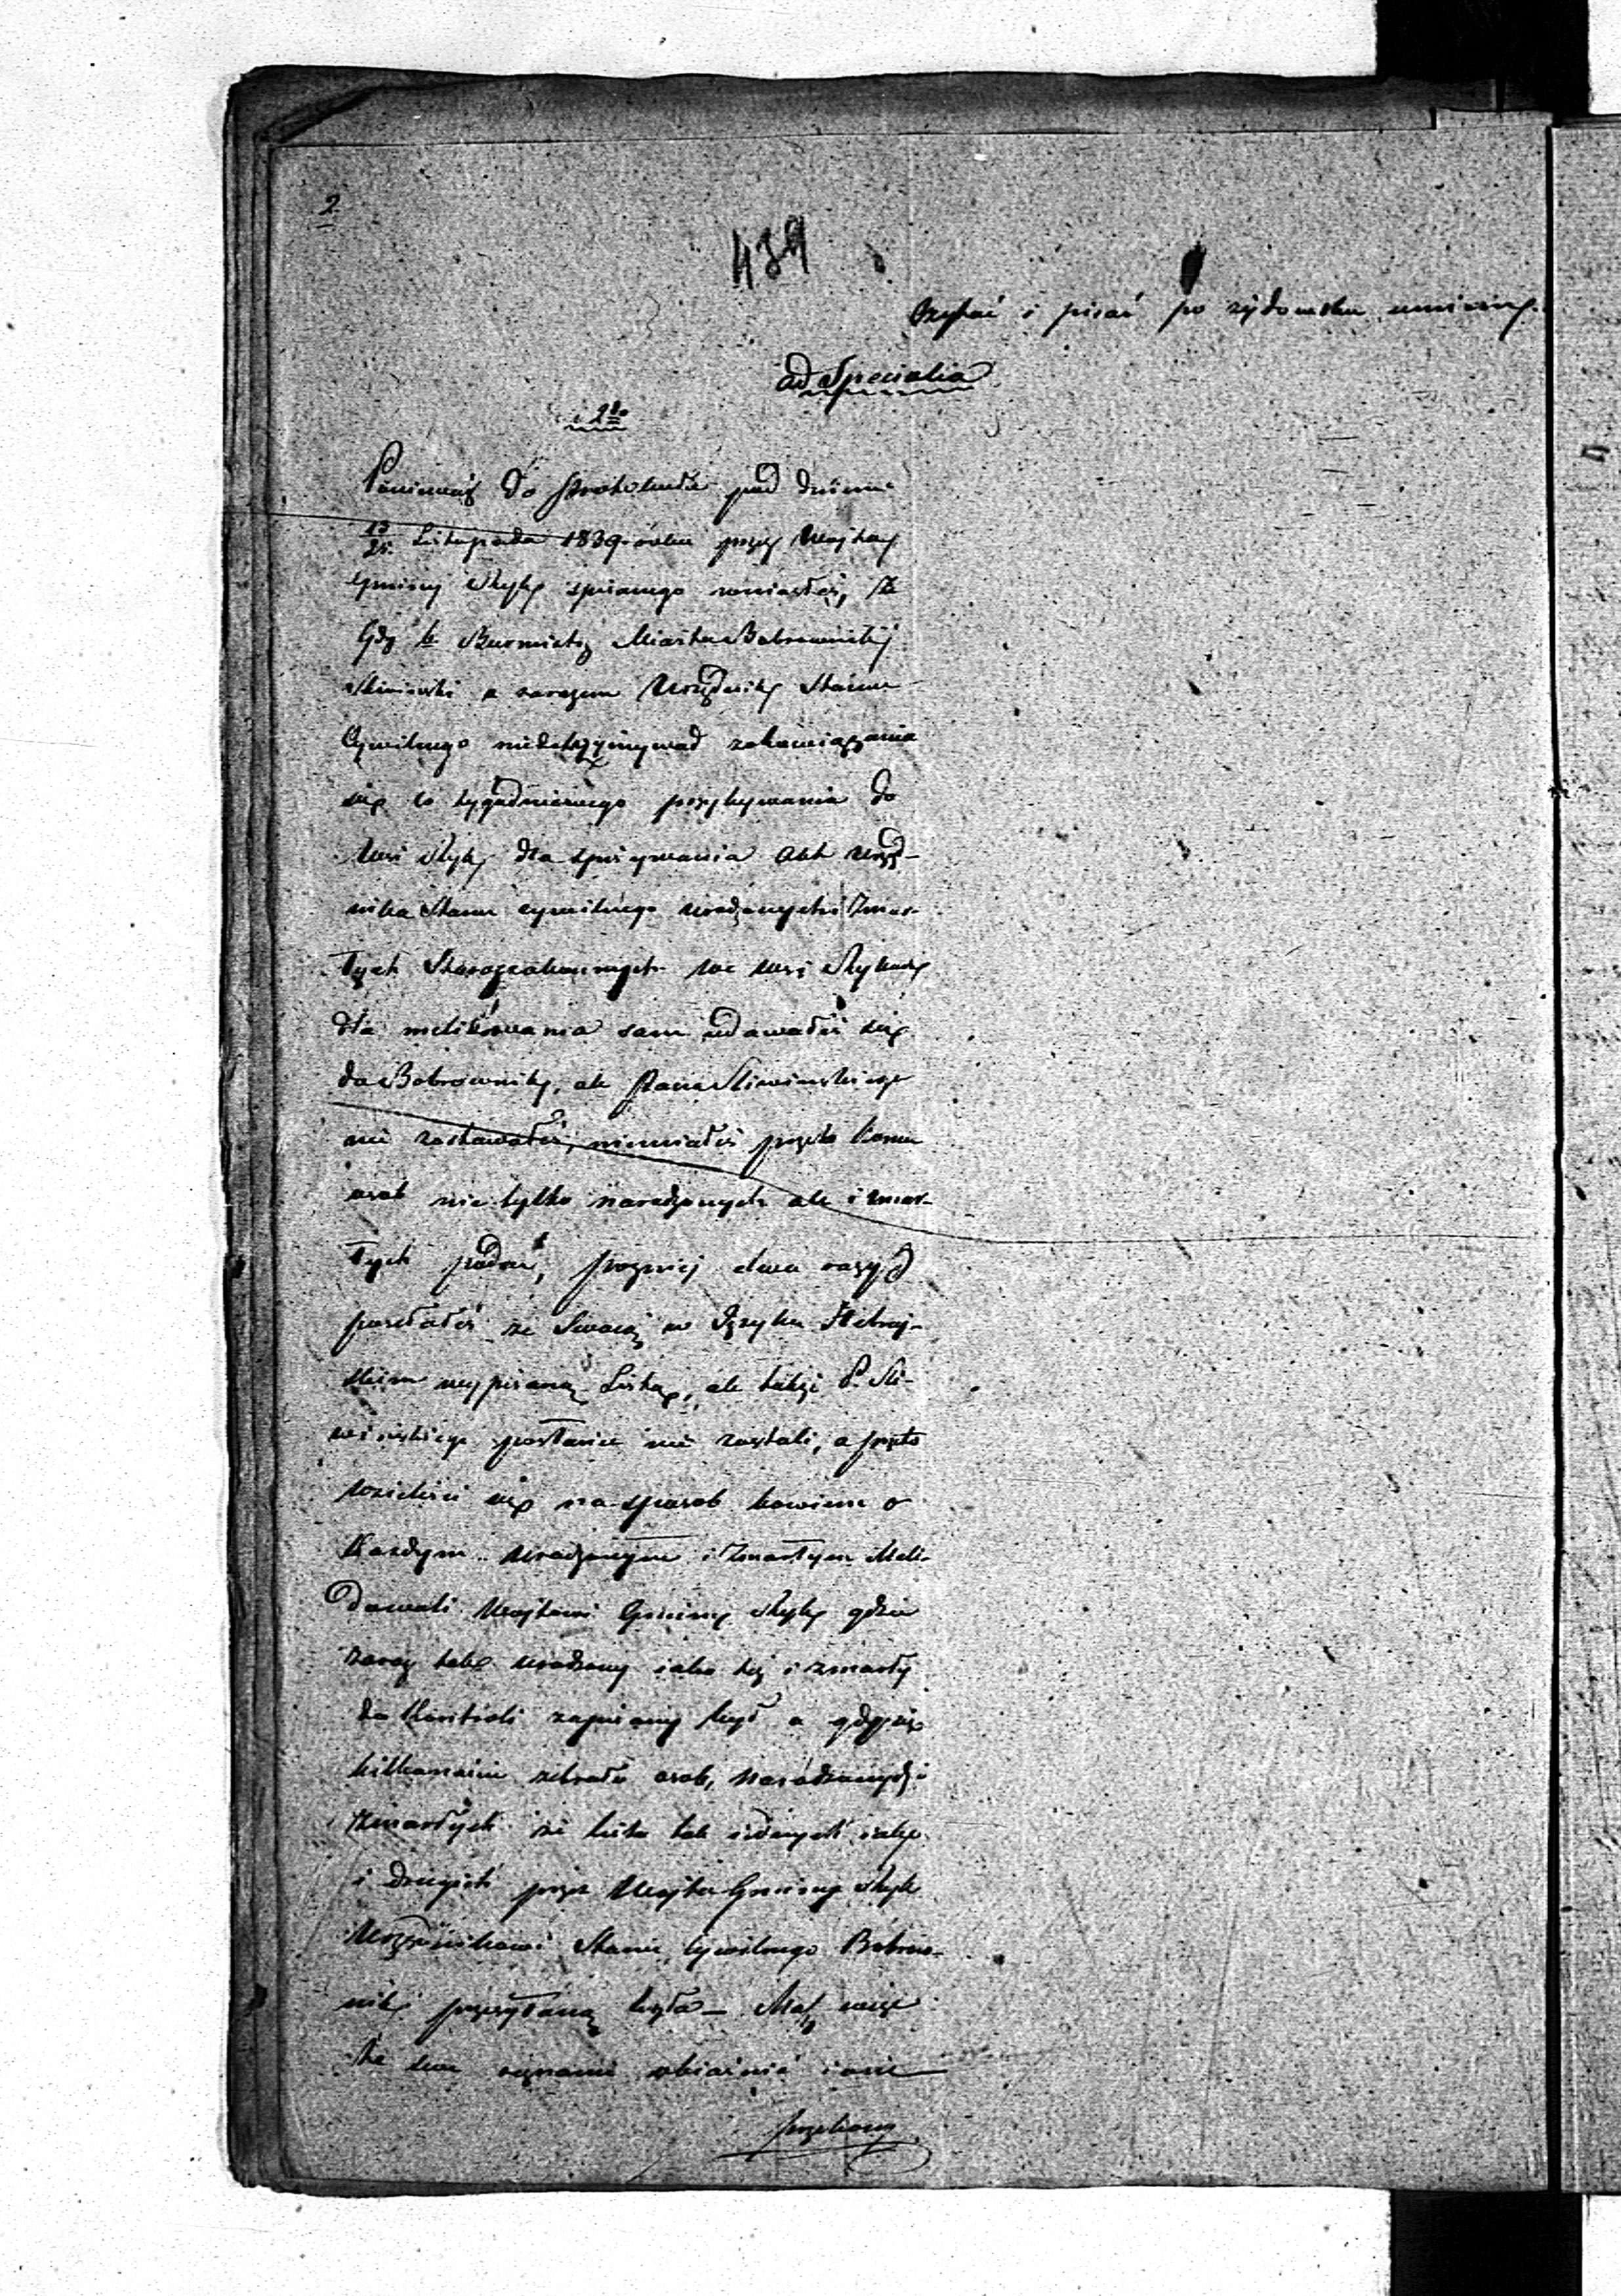 2
439
Czytać i pisać po żydowsku umiemy.
ad Specialia
2do
Ponieważ do protokułu pod dniem
13/25 Listopada 1839 roku przez Wojta
Gminy Skępe spisanego wniosłeś, że
gdy Burmistrz Miasta Bobrownik
Sliwinski a zarazem Urzędnik Stanu
Cywilnego niedotrzymywał zobowiązania
się co tygodniowego przybywania do
Wsi dla spisywania Akt Urzęd-
nika Stanu cywilnego urodzonych i Zmar-
łych Starozakonnych we wsi
dla meldowania sam udawałeś się
do Bobrownik, ale Pana Sliwinskiego
nie zastawałeś, niemiałeś przeto komu
osob nie tylko narodzonych ale i zmar-
łych podać, pozniej dwa razy
posełałeś ze Swoią w Języku Hebraj-
skim wypisaną Listą, ale także P. Sli-
winskiego posłańce nie zastali, a przeto
wzieliści się na sposob bowiem o
Każdym Urodzonym i Zmarłym Mel-
dowali Wojtowi Gminy gdzie
zaraz tak urodzony iako też i zmarły
do Kontroli zapisany był a gdy się
kilkanaście zebrało osob, narodzonych i
zmarłych to lista tak iednych iak
i drugich przez Wojta Gminy
Urzędnikowi Stanu Cywilnego Bobrow-
nik przesyłaną była – Masz więc
obiaśnić
przeliczony